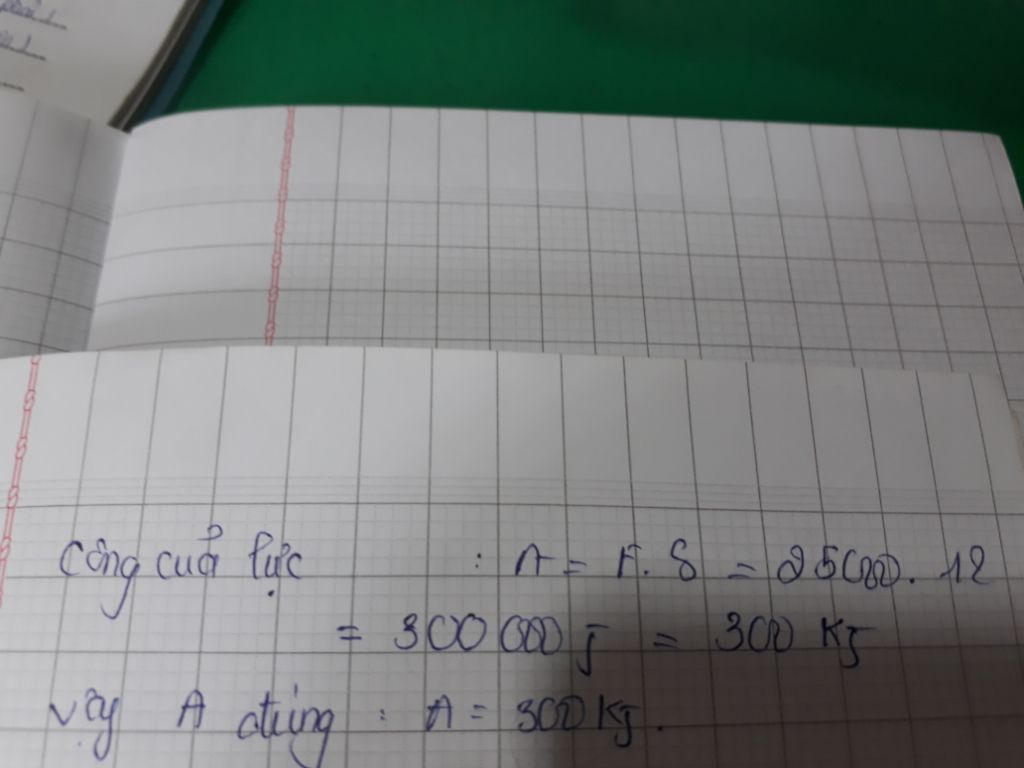 Công cuả lực : A = F. S = 25000. 12
= 300 000 J = 300 KJ
vậy A đúng : A = 300 KJ.